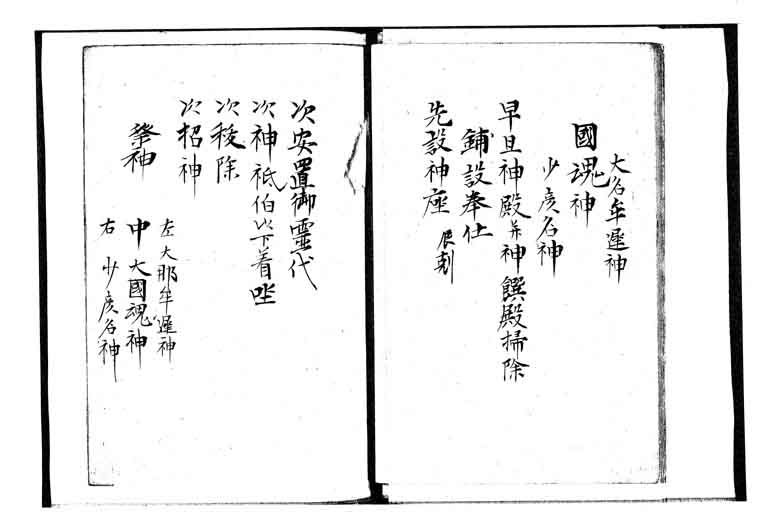 大名牟遅神
國魂神
少彦名神
早旦神殿并神饌殿掃除
鋪設奉仕
先設神座 辰刻
次安置御靈代
次神祇伯以下着坐
次秡除
次招神
祭神
左 大那牟遅神
中 大國魂神
右 少彦名神